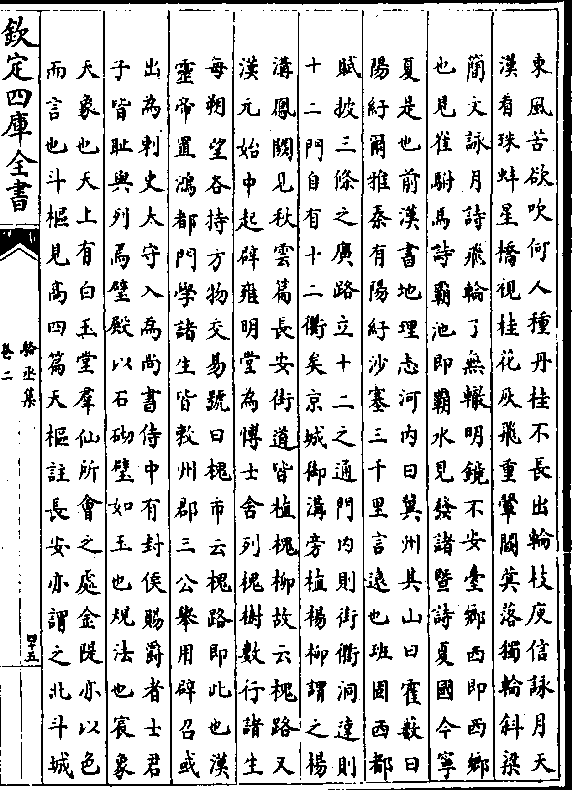 東風苦欲吹何人種丹桂不長出輪枝庾信詠月天
漢看珠蚌星橋視桂花灰飛重暈闕蓂落獨輪斜梁
簡文詠月詩飛輪了無轍明鏡不安臺鄉西即西鄉
也見崔駙馬詩霸池即霸水見發諸暨詩夏國今寧
夏是也前漢書地理志河内曰冀州其山曰霍藪曰
陽紆爾雅秦有陽紆沙塞三千里言遠也班固西都
賦披三條之廣路立十二之通門内則街衢洞達則
十二門自有十二衢矣京城御溝旁植楊柳謂之楊
溝鳳闕見秋雲篇長安街道皆植槐柳故云槐路又
漢元始中起辟雍明堂為博士舍列槐樹數行諸生
每朔望各持方物交易號曰槐市云槐路即此也漢
靈帝置鴻都門學諸生皆敕州郡三公舉用辟召或
出為刺史太守入為尚書侍中有封侯賜爵者士君
子皆恥與列焉璧殿以石砌璧如玉也規法也宸象
天象也天上有白玉堂羣仙所會之處金隄亦以色
而言也斗樞見髙四篇天樞註長安亦謂之北斗城
欽定四庫全書
駱丞集
卷二
四十五